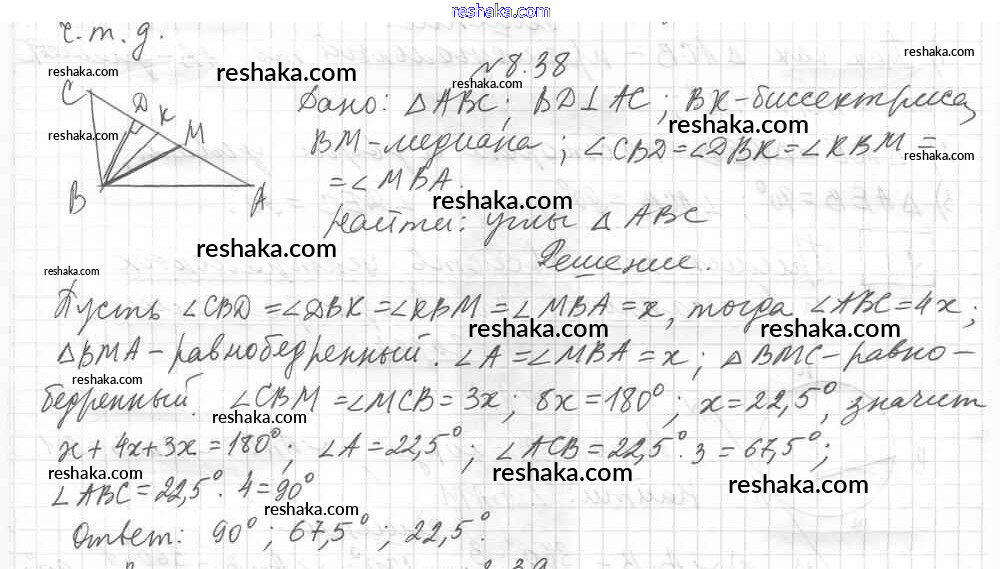 reshaka.com
ч.т.д.
№8.38
Дано: △ABC; BD⊥AC; BK-биссектриса,
BM-медиана; ∠CBD=∠DBK=∠KBM=
=∠MBA.
Найти: углы △ABC
Решение.
Пусть ∠CBD=∠DBK=∠KBM=∠MBA=x, тогда ∠ABC=4x;
△BMA-равнобедренный. ∠A=∠MBA=x; △BMC-равно-
бедренный. ∠CBM=∠MCB=3x; 8x=180°; x=22,5°, значит
x+4x+3x=180°; ∠A=22,5°; ∠ACB=22,5°·3=67,5°;
∠ABC=22,5°·4=90°
Ответ: 90°; 67,5°; 22,5°.
C
D
K
M
B
A
reshaka.com
reshaka.com
reshaka.com
reshaka.com
reshaka.com
reshaka.com
reshaka.com
reshaka.com
reshaka.com
reshaka.com
reshaka.com
reshaka.com
reshaka.com
reshaka.com
reshaka.com
reshaka.com
reshaka.com
reshaka.com